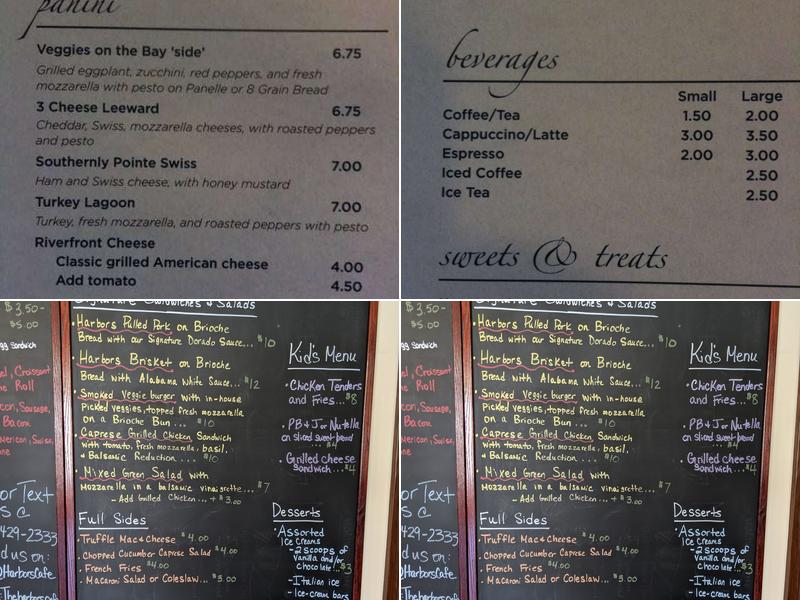 panini
Veggies on the Bay 'side' 6.75
Grilled eggplant, zucchini, red peppers, and fresh
mozzarella with pesto on Panelle or 8 Grain Bread
3 Cheese Leeward 6.75
Cheddar, Swiss, mozzarella cheeses, with roasted peppers
and pesto
Southernly Pointe Swiss 7.00
Ham and Swiss cheese, with honey mustard
Turkey Lagoon 7.00
Turkey, fresh mozzarella, and roasted peppers with pesto
Riverfront Cheese
Classic grilled American cheese 4.00
Add tomato 4.50
beverages
Small Large
Coffee/Tea 1.50 2.00
Cappuccino/Latte 3.00 3.50
Espresso 2.00 3.00
Iced Coffee 2.50
Ice Tea 2.50
sweets & treats
$3.50-
$5.00
gg Sandwich
el, Croissant
e Roll
con, Sausage,
Bacon
merican, Swiss,
one
or Text
s @
429-2333
d us on:
@HarborsCafe
Theharborscafe
Signature Sandwiches & Salads
• Harbors Pulled Pork on Brioche
Bread with our Signature Dorado Sauce... $10
• Harbors Brisket on Brioche
Bread with Alabama White Sauce... $12
• Smoked Veggie burger with in-house
Picked veggies, topped fresh mozzarella
on a Brioche Bun... $10
• Caprese Grilled Chicken Sandwich
with tomato, fresh mozzarella, basil,
& Balsamic Reduction... $10
• Mixed Green Salad with
Mozzarella in a balsamic vinaigrette... $7
- Add Grilled Chicken... + $3.00
Full Sides
• Truffle Mac & Cheese $4.00
• Chopped Cucumber Caprese Salad $4.00
• French Fries $4.00
• Macaroni Salad or Coleslaw... $3.00
Kid's Menu
• Chicken Tenders
and Fries... $8
• PB & J or Nutella
on sliced sweet bread
$4
• Grilled cheese
Sandwich... $4
Desserts
• Assorted
Ice Creams
- 2 scoops of
Vanilla and/or
chocolate!.. $3
- Italian ice
- Ice-cream bars
$3.50-
$5.00
gg Sandwich
el, Croissant
e Roll
con, Sausage,
Bacon
merican, Swiss,
one
or Text
s @
429-2333
d us on:
@HarborsCafe
Theharborscafe
Signature Sandwiches & Salads
• Harbors Pulled Pork on Brioche
Bread with our Signature Dorado Sauce... $10
• Harbors Brisket on Brioche
Bread with Alabama White Sauce... $12
• Smoked Veggie burger with in-house
Picked veggies, topped fresh mozzarella
on a Brioche Bun... $10
• Caprese Grilled Chicken Sandwich
with tomato, fresh mozzarella, basil,
& Balsamic Reduction... $10
• Mixed Green Salad with
Mozzarella in a balsamic vinaigrette... $7
- Add Grilled Chicken... + $3.00
Full Sides
• Truffle Mac & Cheese $4.00
• Chopped Cucumber Caprese Salad $4.00
• French Fries $4.00
• Macaroni Salad or Coleslaw... $3.00
Kid's Menu
• Chicken Tenders
and Fries... $8
• PB & J or Nutella
on sliced sweet bread
$4
• Grilled cheese
Sandwich... $4
Desserts
• Assorted
Ice Creams
- 2 scoops of
Vanilla and/or
chocolate!.. $3
- Italian ice
- Ice-cream bars